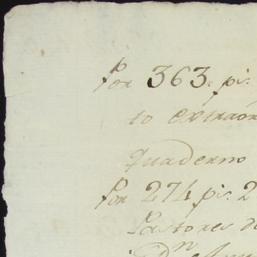 Por 363. ps.
to extraor
quaderno
Por 274 ps. 2
Pastores de